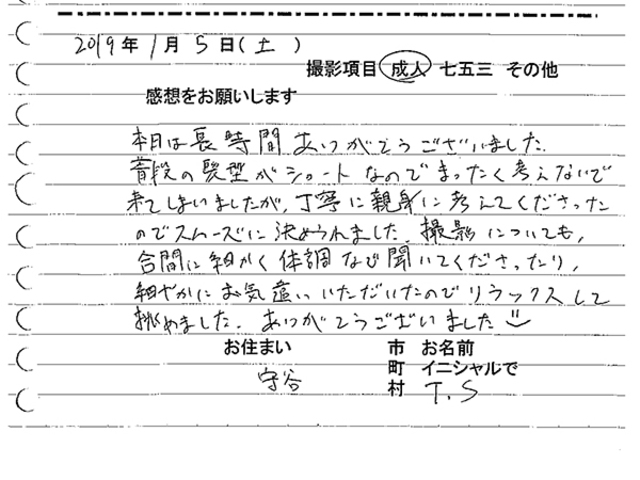 2019年1月5日(土)
撮影項目 成人 七五三 その他
感想をお願いします
本日は長時間ありがとうございました.
普段の髪型がショートなのでまったく考えないで
来てしまいましたが、丁寧に親身に考えてくださった
のでスムーズに決められました. 撮影についても,
合間に細かく体調など聞いてくださったり,
細やかにお気遣いいただいたのでリラックスして
挑めました. ありがとうございました
お住まい 市 お名前
町 イニシャルで
守谷 村 T.S